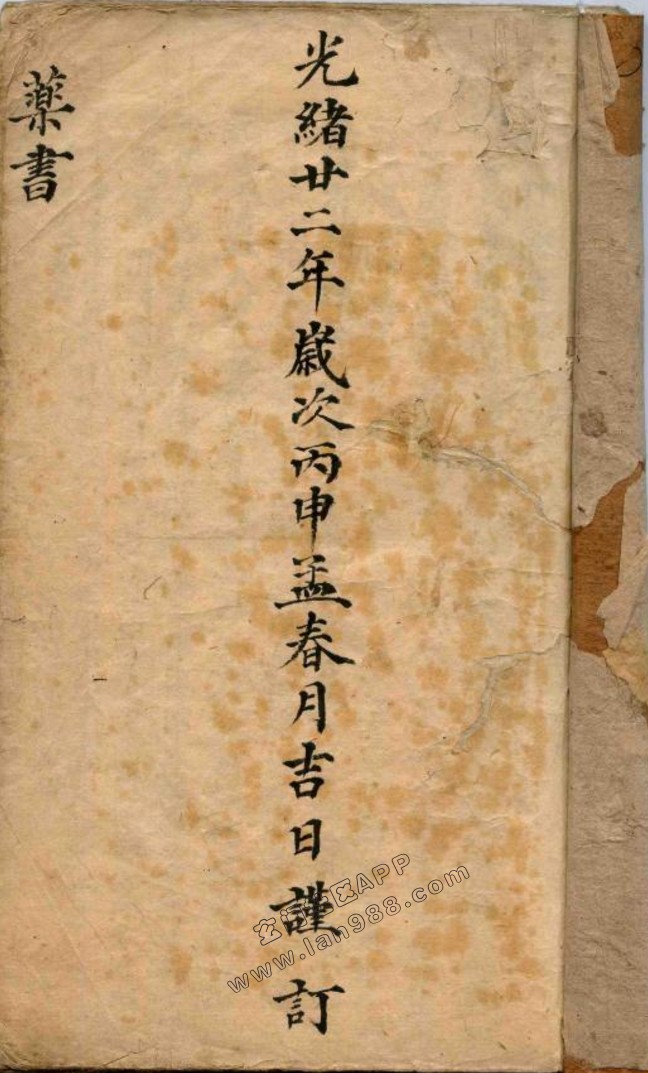 光緒廿二年歲次丙申孟春月吉日謹訂
藥書
www.lan988.com